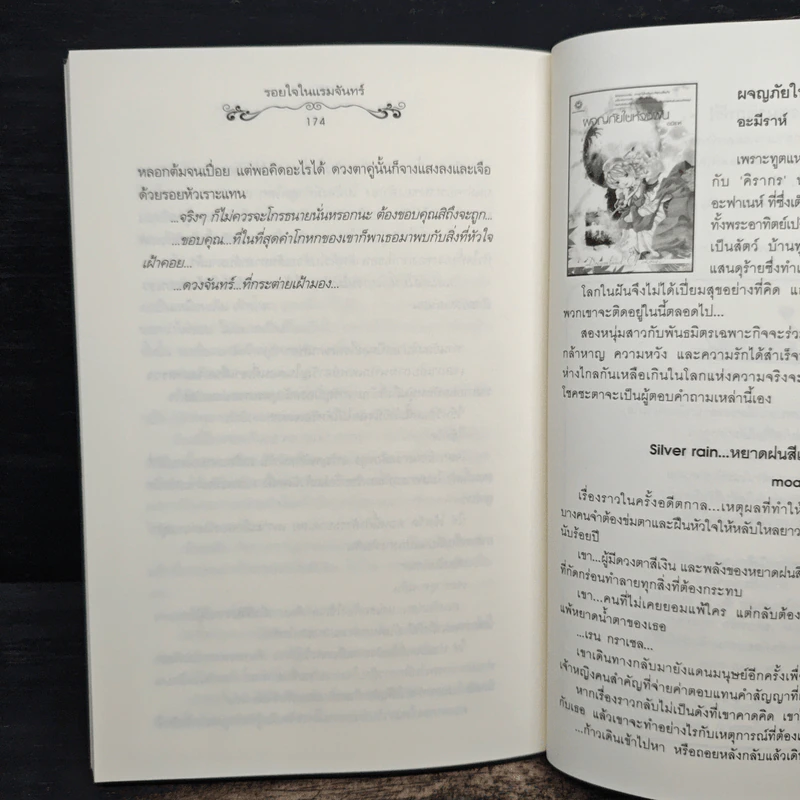 รอยใจในแรมจันทร์
174
หลอกต้มจนเปื่อย แต่พอคิดอะไรได้ ดวงตาคู่นั้นก็จางแสงลงและเจือ
ด้วยรอยหัวเราะแทน
...จริงๆ ก็ไม่ควรจะโกรธนายนั่นหรอกนะ ต้องขอบคุณสิถึงจะถูก...
...ขอบคุณ...ที่ในที่สุดคำโกหกของเขาก็พาเธอมาพบกับสิ่งที่หัวใจ
เฝ้าคอย...
...ดวงจันทร์...ที่กระต่ายเฝ้ามอง...
ผจญภัยใ
อะมีราห์
เพราะทูตแห
กับ 'คิรากร'
อะฟาเนห์ ที่ซึ่งเต็
ทั้งพระอาทิตย์เป
เป็นสัตว์ บ้านพู
แสนดุร้ายซึ่งทำเ
โลกในฝันจึงไม่ได้เปี่ยมสุขอย่างที่คิด แ
พวกเขาจะติดอยู่ในนี้ตลอดไป...
สองหนุ่มสาวกับพันธมิตรเฉพาะกิจจะร่ว
กล้าหาญ ความหวัง และความรักได้สำเร็จ
ห่างไกลกันเหลือเกินในโลกแห่งความจริงจะ
โชคชะตาจะเป็นผู้ตอบคำถามเหล่านี้เอง
Silver rain...หยาดฝนสีเ
moa
เรื่องราวในครั้งอดีตกาล...เหตุผลที่ทำให้
บางคนจำต้องข่มตาและฝืนหัวใจให้หลับใหลยาว
นับร้อยปี
เขา...ผู้มีดวงตาสีเงิน และพลังของหยาดฝนสี
ที่กัดกร่อนทำลายทุกสิ่งที่ต้องกระทบ
เขา...คนที่ไม่เคยยอมแพ้ใคร แต่กลับต้อง
แพ้หยาดน้ำตาของเธอ
...เรน กราเซล...
เขาเดินทางกลับมายังแดนมนุษย์อีกครั้งเพื่
เจ้าหญิงคนสำคัญที่จ่ายค่าตอบแทนคำสัญญาที่
หากเรื่องราวกลับไม่เป็นดังที่เขาคาดคิด เขา
กับเธอ แล้วเขาจะทำอย่างไรกับเหตุการณ์ที่ต้องเ
...ก้าวเดินเข้าไปหา หรือถอยหลังกลับแล้วเดิ